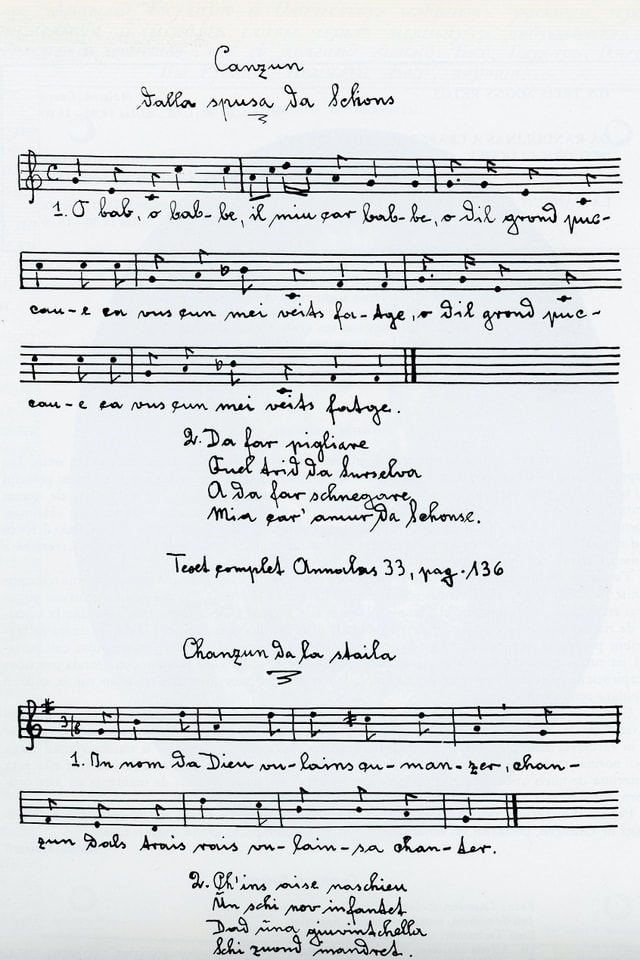 Canzun
dalla spusa da Schons
1. O bab, o bab-be, il miu car bab-be, o dil grond puc-
cau-e ca vus cun mei veits fa-tge, o dil grond puc-
cau-e ca vus cun mei veits fatge.
2. Da far pigliare
Quel trid da Surselva
A da far schnegare
Mia car' amur da Schonse.
Text complet Annalas 33, pag. 136
Chanzun da la staila
3/8
1. In nom da Dieu vu-lains cu-man-zer, chan-
zun dals trais rais vu-lain-sa chan-ter.
2. Ch'ins aise naschieu
Ün schi nov infantet
Dad üna giuvintschella
Schi zuond mandret.